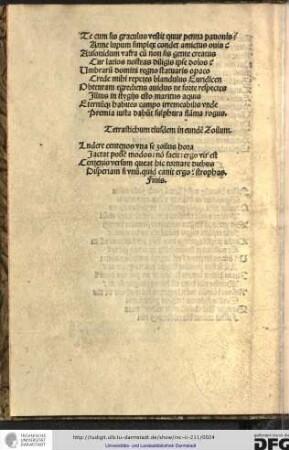 Te cum sis graculus vestit quur penna pauonis?
Anne lupum simplex condet amictus ouis?
Ausonidum vafra cū non sis gente creatus
Cur larios nostras diligis ipse dolos?
Umbrarū domini regno statuaris opaco
Crede mihi repetes blandulus Euridicen
Obteuram egrediens auidus ne forte respectes
Illius in stygijs esto maritus aquis
Eternūq̃ habites campo irremeabilis vnde
Premia iusta dabūt sulphura flāma rogus.
Tetrastichum eiusdem in eundē Zoilum.
Ludere centenos vna se zoilus hora
Iactat posse modos: nō facit: ergo vir est
Centenos versum queat hic tornare diebus
Dispeream si vnū. quid canit ergo? strophas.
Finis.
TECHNISCHE
UNIVERSITÄT
DARMSTADT
http://tudigit.ulb.tu-darmstadt.de/show/inc-ii-211/0024
Universitäts- und Landesbibliothek Darmstadt
gefördert durch die
DFG